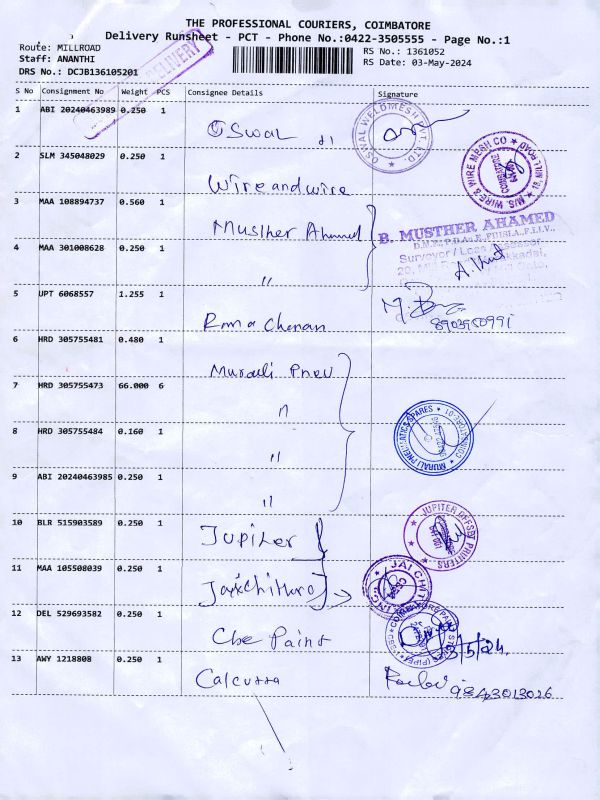 THE PROFESSIONAL COURIERS, COIMBATORE
Delivery Runsheet - PCT - Phone No.:0422-3505555 - Page No.:1
Route: MILLROAD
Staff: ANANTHI
DRS No.: DCJB136105201
RS No.: 1361052
RS Date: 03-May-2024
DELIVERY
S No Consignment No Weight PCS Consignee Details Signature
1 ABI 20240463989 0.250 1 Oswal
OSWAL WELDMESH PVT. LTD.
2 SLM 345048029 0.250 1 Wire and wire
M/S. WIRE & WIRE MESH CO
3 MAA 108894737 0.560 1 Musther Ahamed
B. MUSTHER AHAMED
Surveyor / Loss Assessor
4 MAA 301008628 0.250 1 "
5 UPT 6068557 1.255 1
6 HRD 305755481 0.480 1 Murali Pneu
7 HRD 305755473 66.000 6 "
8 HRD 305755484 0.160 1 "
MURALI PNEUMATICS SPARES
9 ABI 20240463985 0.250 1 "
10 BLR 515903589 0.250 1 Jupiter
JUPITER OFFSET PRINTERS
11 MAA 105508039 0.250 1
JAI
12 DEL 529693582 0.250 1 Cbe Paint
3/5/24.
13 AWY 1218808 0.250 1 Calcutta
9843013026